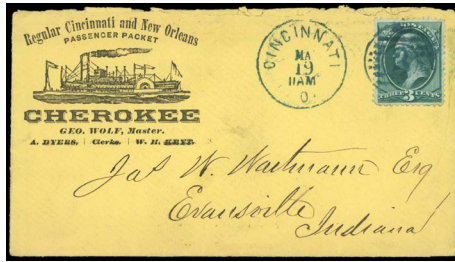 Regular Cincinnati and New Orleans
PASSENGER PACKET
CHEROKEE
GEO. WOLF, Master.
A. DYERS, | Clerks. | W. H. KEYT.
CINCINNATI
MA
19
11AM
O.
THREE 3 CENTS
Jas W. Wartmann Esq
Evansville
Indiana